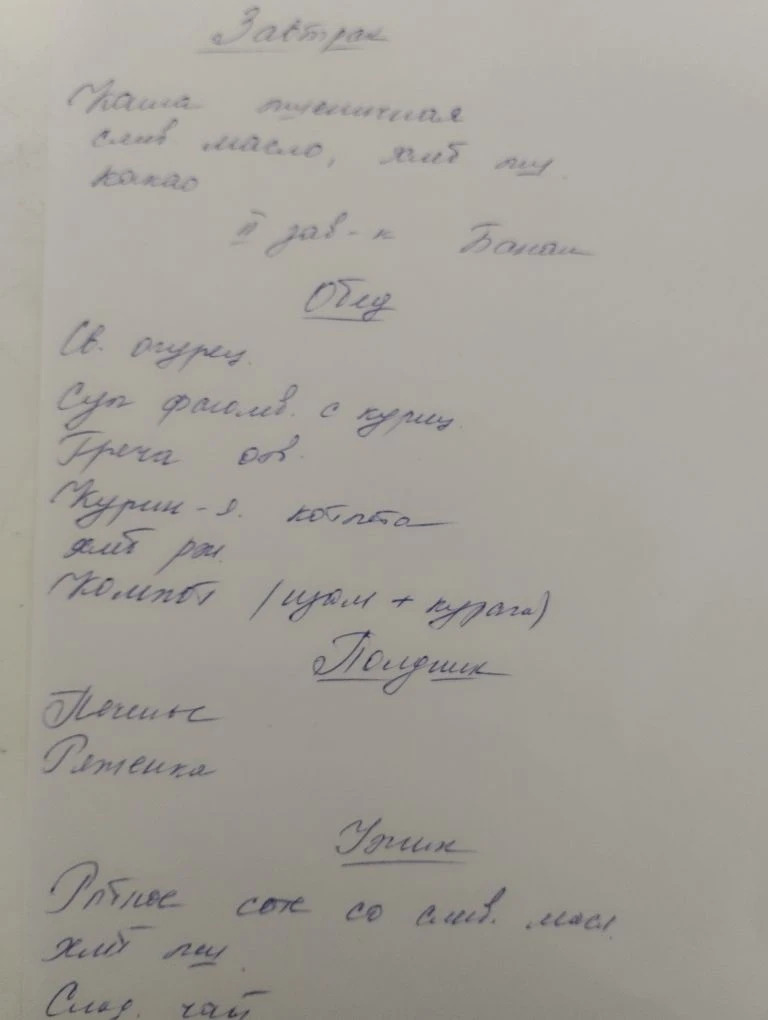 Завтрак
Каша пшеничная
слив масло, хлеб пш.
какао
II зав-к Банан
Обед
Св. огурец.
Суп фасолев. с куриц.
Греча отв.
Курин-я. котлета
хлеб рж.
Компот (изюм + курага)
Полдник
Печенье
Ряженка
Ужин
со слив. масл
хлеб пш.
Слад. чай